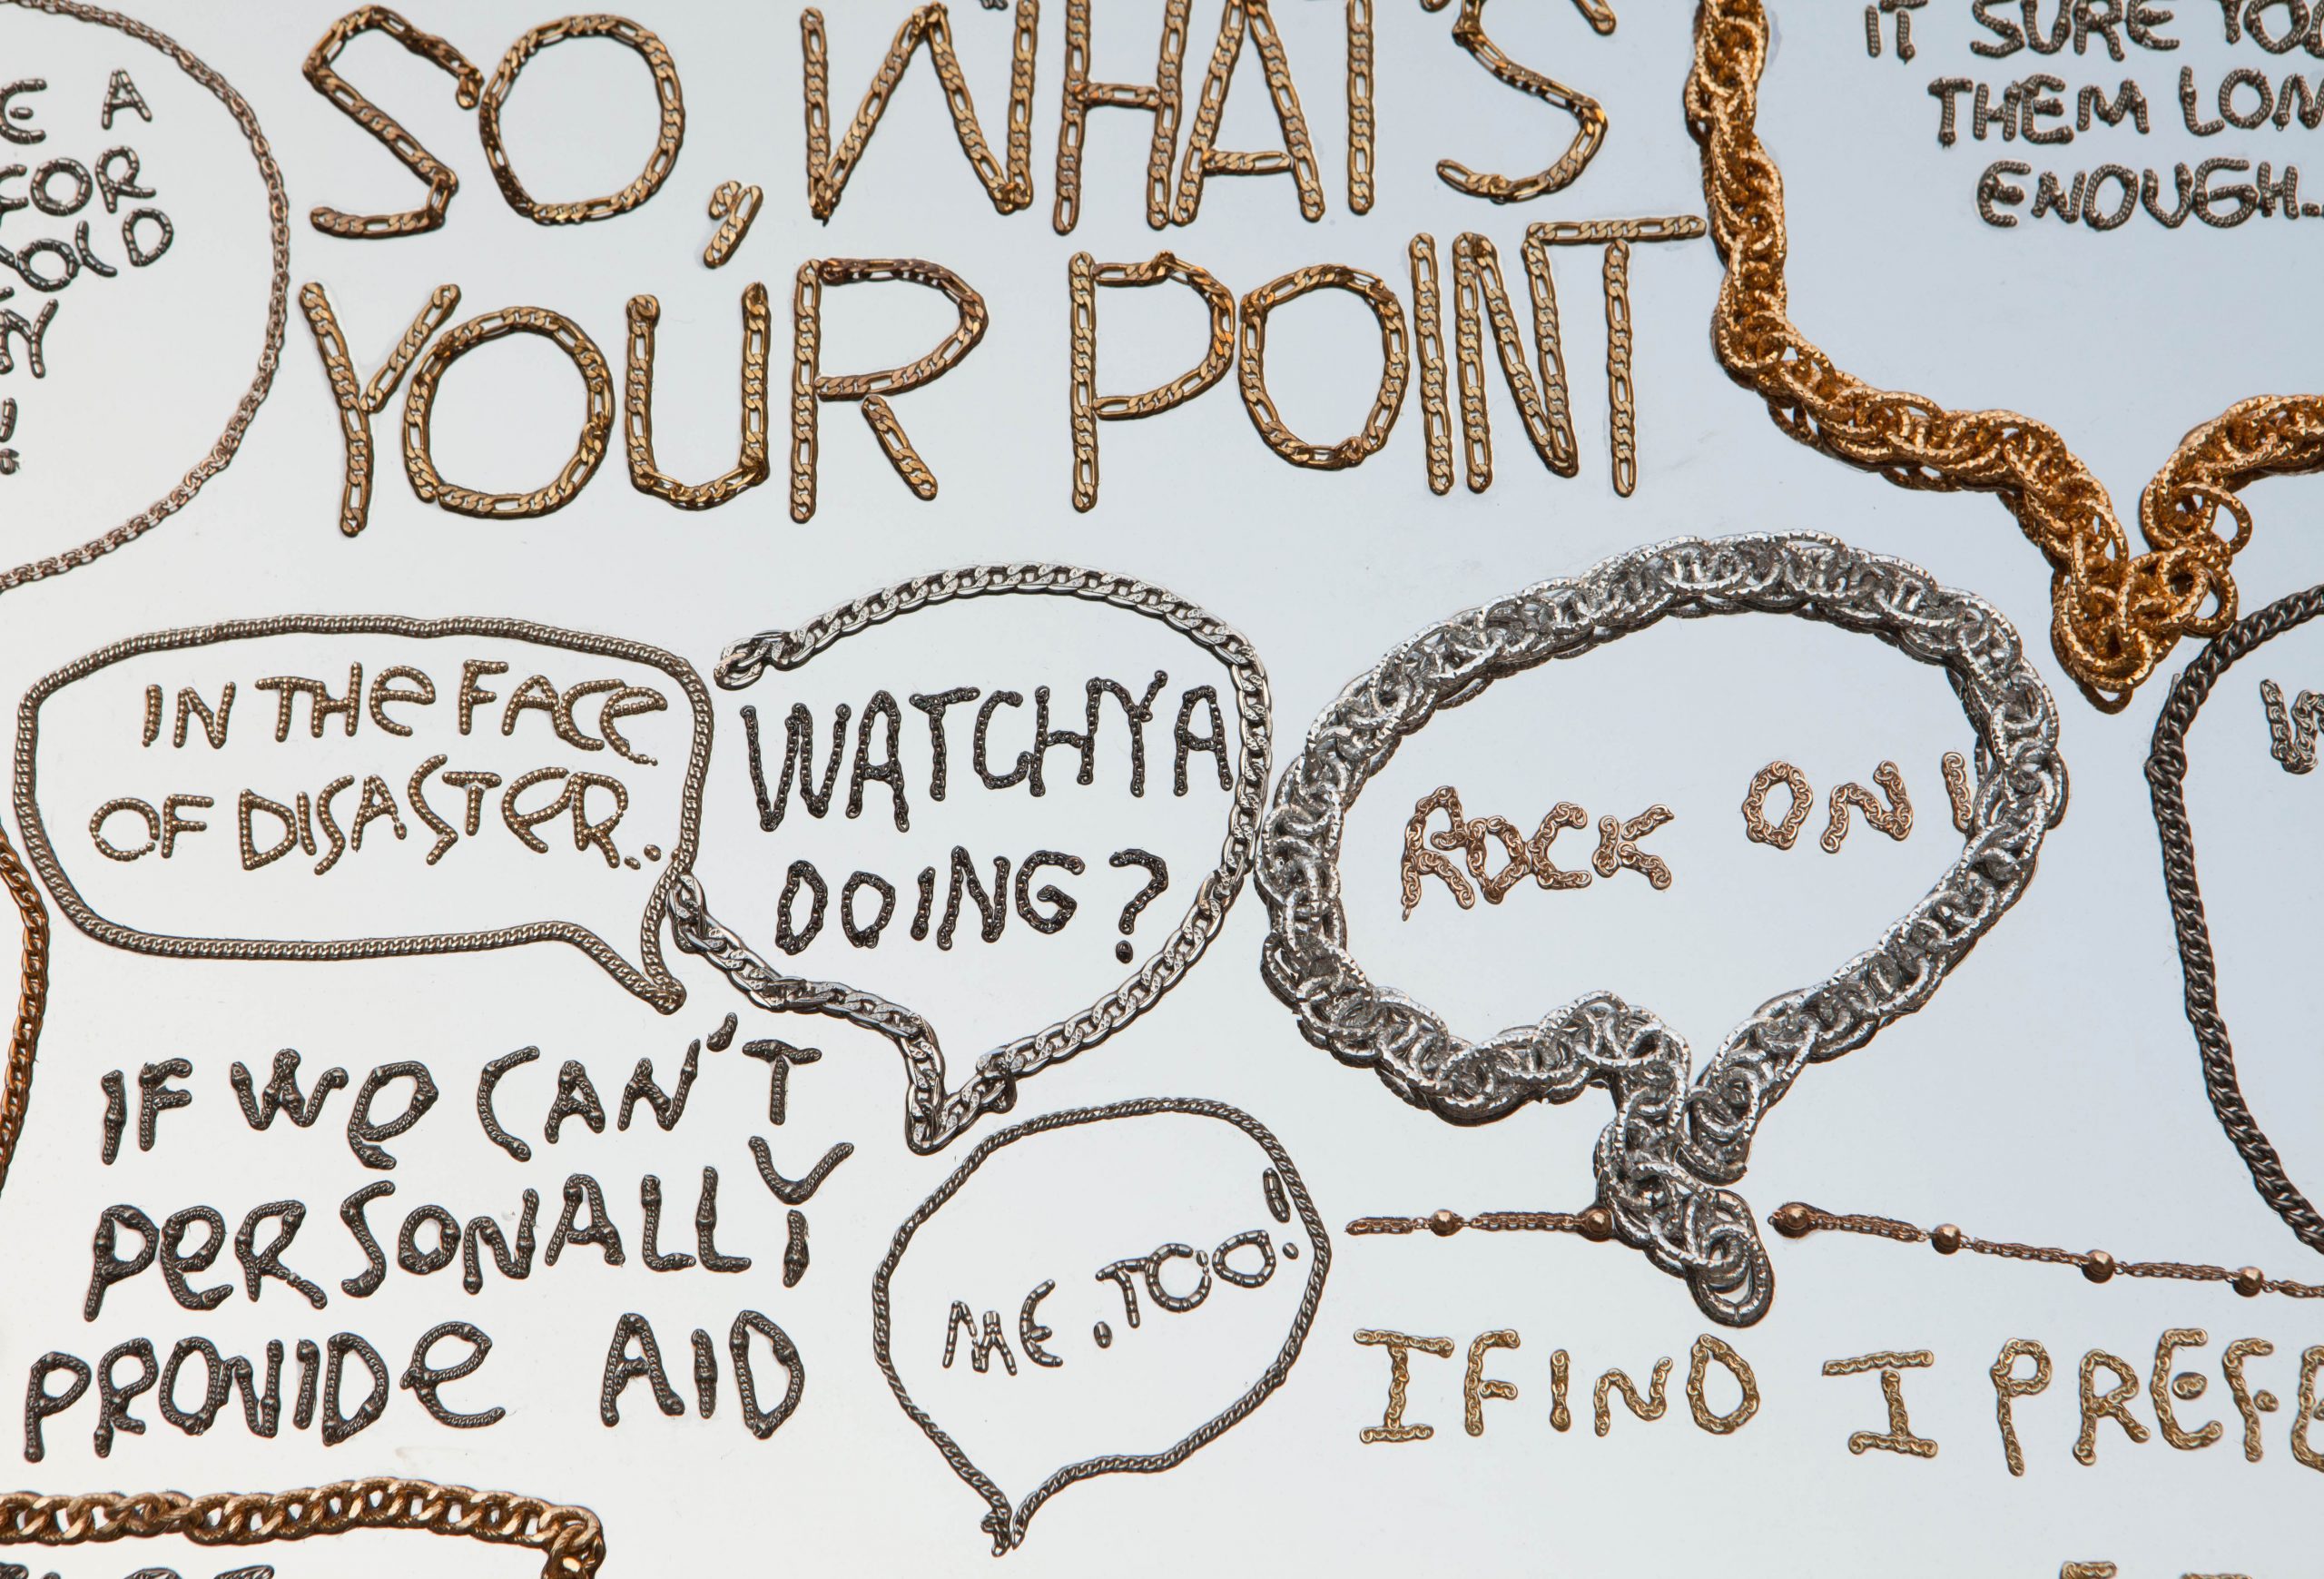 E A
FOR
COLD
SO, WHAT'S
YOUR POINT
IT SURE TOO
THEM LON
ENOUGH..
IN THE FACE
OF DISASTER..
WATCHYA
DOING?
ROCK ON!
IF WE CAN'T
PERSONALLY
PROVIDE AID
ME, TOO!
I FIND I PREFE